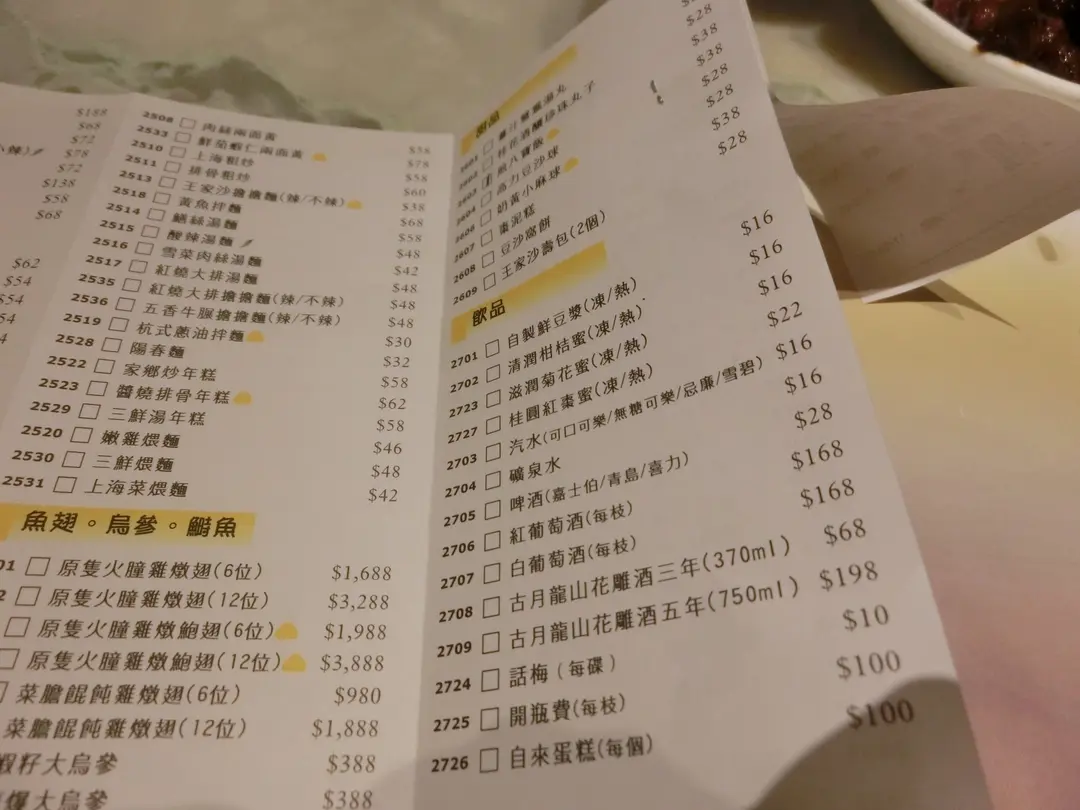 $188
$68
$72
辣) $78
$72
$138
$58
$68
$62
$54
$54
2508 肉絲兩面黃 $58
2533 鮮茄蝦仁兩面黃 $78
2510 上海粗炒 $58
2511 排骨粗炒 $60
2513 王家沙擔擔麵(辣/不辣) $38
2518 黃魚拌麵 $68
2514 鱔絲湯麵 $58
2515 酸辣湯麵 $48
2516 雪菜肉絲湯麵 $42
2517 紅燒大排湯麵 $48
2535 紅燒大排擔擔麵(辣/不辣) $48
2536 五香牛腱擔擔麵(辣/不辣) $48
2519 杭式蔥油拌麵 $30
2528 陽春麵 $32
2522 家鄉炒年糕 $58
2523 醬燒排骨年糕 $62
2529 三鮮湯年糕 $58
2520 嫩雞煨麵 $46
2530 三鮮煨麵 $48
2531 上海菜煨麵 $42
魚翅。烏參。鰣魚
01 原隻火朣雞燉翅(6位) $1,688
2 原隻火朣雞燉翅(12位) $3,288
原隻火朣雞燉鮑翅(6位) $1,988
原隻火朣雞燉鮑翅(12位) $3,888
菜膽餛飩雞燉翅(6位) $980
菜膽餛飩雞燉翅(12位) $1,888
蝦籽大烏參 $388
爆大烏參 $388
甜品
2601 薑汁
2602 桂花酒釀珍珠丸子 $28
2603 八寶飯 $38
2604 高力豆沙球 $38
2606 奶黃小麻球 $28
2607 棗泥糕 $28
2608 豆沙窩餅 $38
2609 王家沙壽包(2個) $28
飲品
2701 自製鮮豆漿(凍/熱) $16
2702 清潤柑桔蜜(凍/熱) $16
2723 滋潤菊花蜜(凍/熱) $16
2727 桂圓紅棗蜜(凍/熱) $22
2703 汽水(可口可樂/無糖可樂/忌廉/雪碧) $16
2704 礦泉水 $16
2705 啤酒(嘉士伯/青島/喜力) $28
2706 紅葡萄酒(每枝) $168
2707 白葡萄酒(每枝) $168
2708 古月龍山花雕酒三年(370ml) $68
2709 古月龍山花雕酒五年(750ml) $198
2724 話梅(每碟) $10
2725 開瓶費(每枝) $100
2726 自來蛋糕(每個) $100